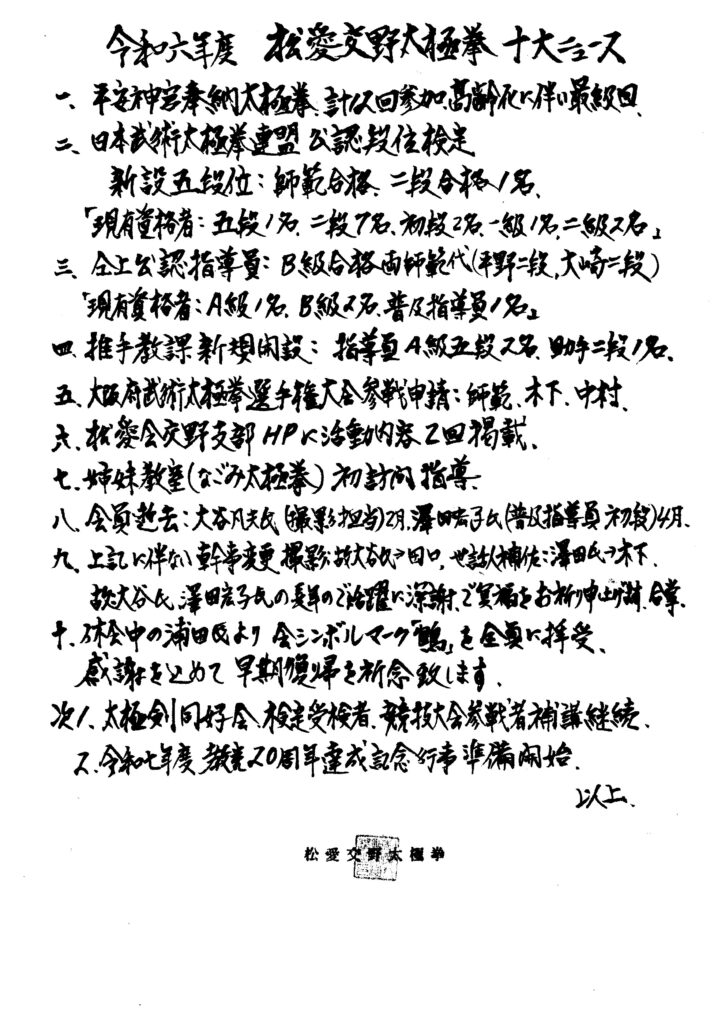 令和六年度 松愛交野太極拳 十大ニュース
一、平安神宮奉納太極拳、計12回参加、高齢化に伴い最終回、
二、日本武術太極拳連盟 公認段位検定
新設五段位：師範合格、二段合格1名、
「現有資格者：五段1名、二段7名、初段2名、一級1名、二級2名」
三、仝上公認指導員：B級合格両師範代(平野二段、大崎二段)
「現有資格者：A級1名、B級2名、普及指導員1名」
四、推手教課新規開設：指導員A級五段2名、助手二段1名、
五、大阪府武術太極拳選手権大会参戦申請：師範、木下、中村、
六、松愛会交野支部HPに活動内容2回掲載、
七、姉妹教室(なごみ太極拳)初訪問指導、
八、会員逝去：大谷凡夫氏(撮影担当)2月、澤田宏子氏(普及指導員初段)4月、
九、上記に伴ない幹事変更 撮影：故大谷氏→田口、世話人補佐：澤田氏→木下、
故大谷氏、澤田宏子氏の長年のご活躍に深謝、ご冥福をお祈り申上げ、合掌、
十、休会中の浦田氏より会シンボルマーク「鶴」を全員に拝受、
感謝を込めて早期復帰を祈念致します、
次1、太極剣同好会、検定受検者、競技大会参戦者補講継続、
2、令和七年度教室20周年達成記念行事準備開始、
以上、
松愛交野太極拳